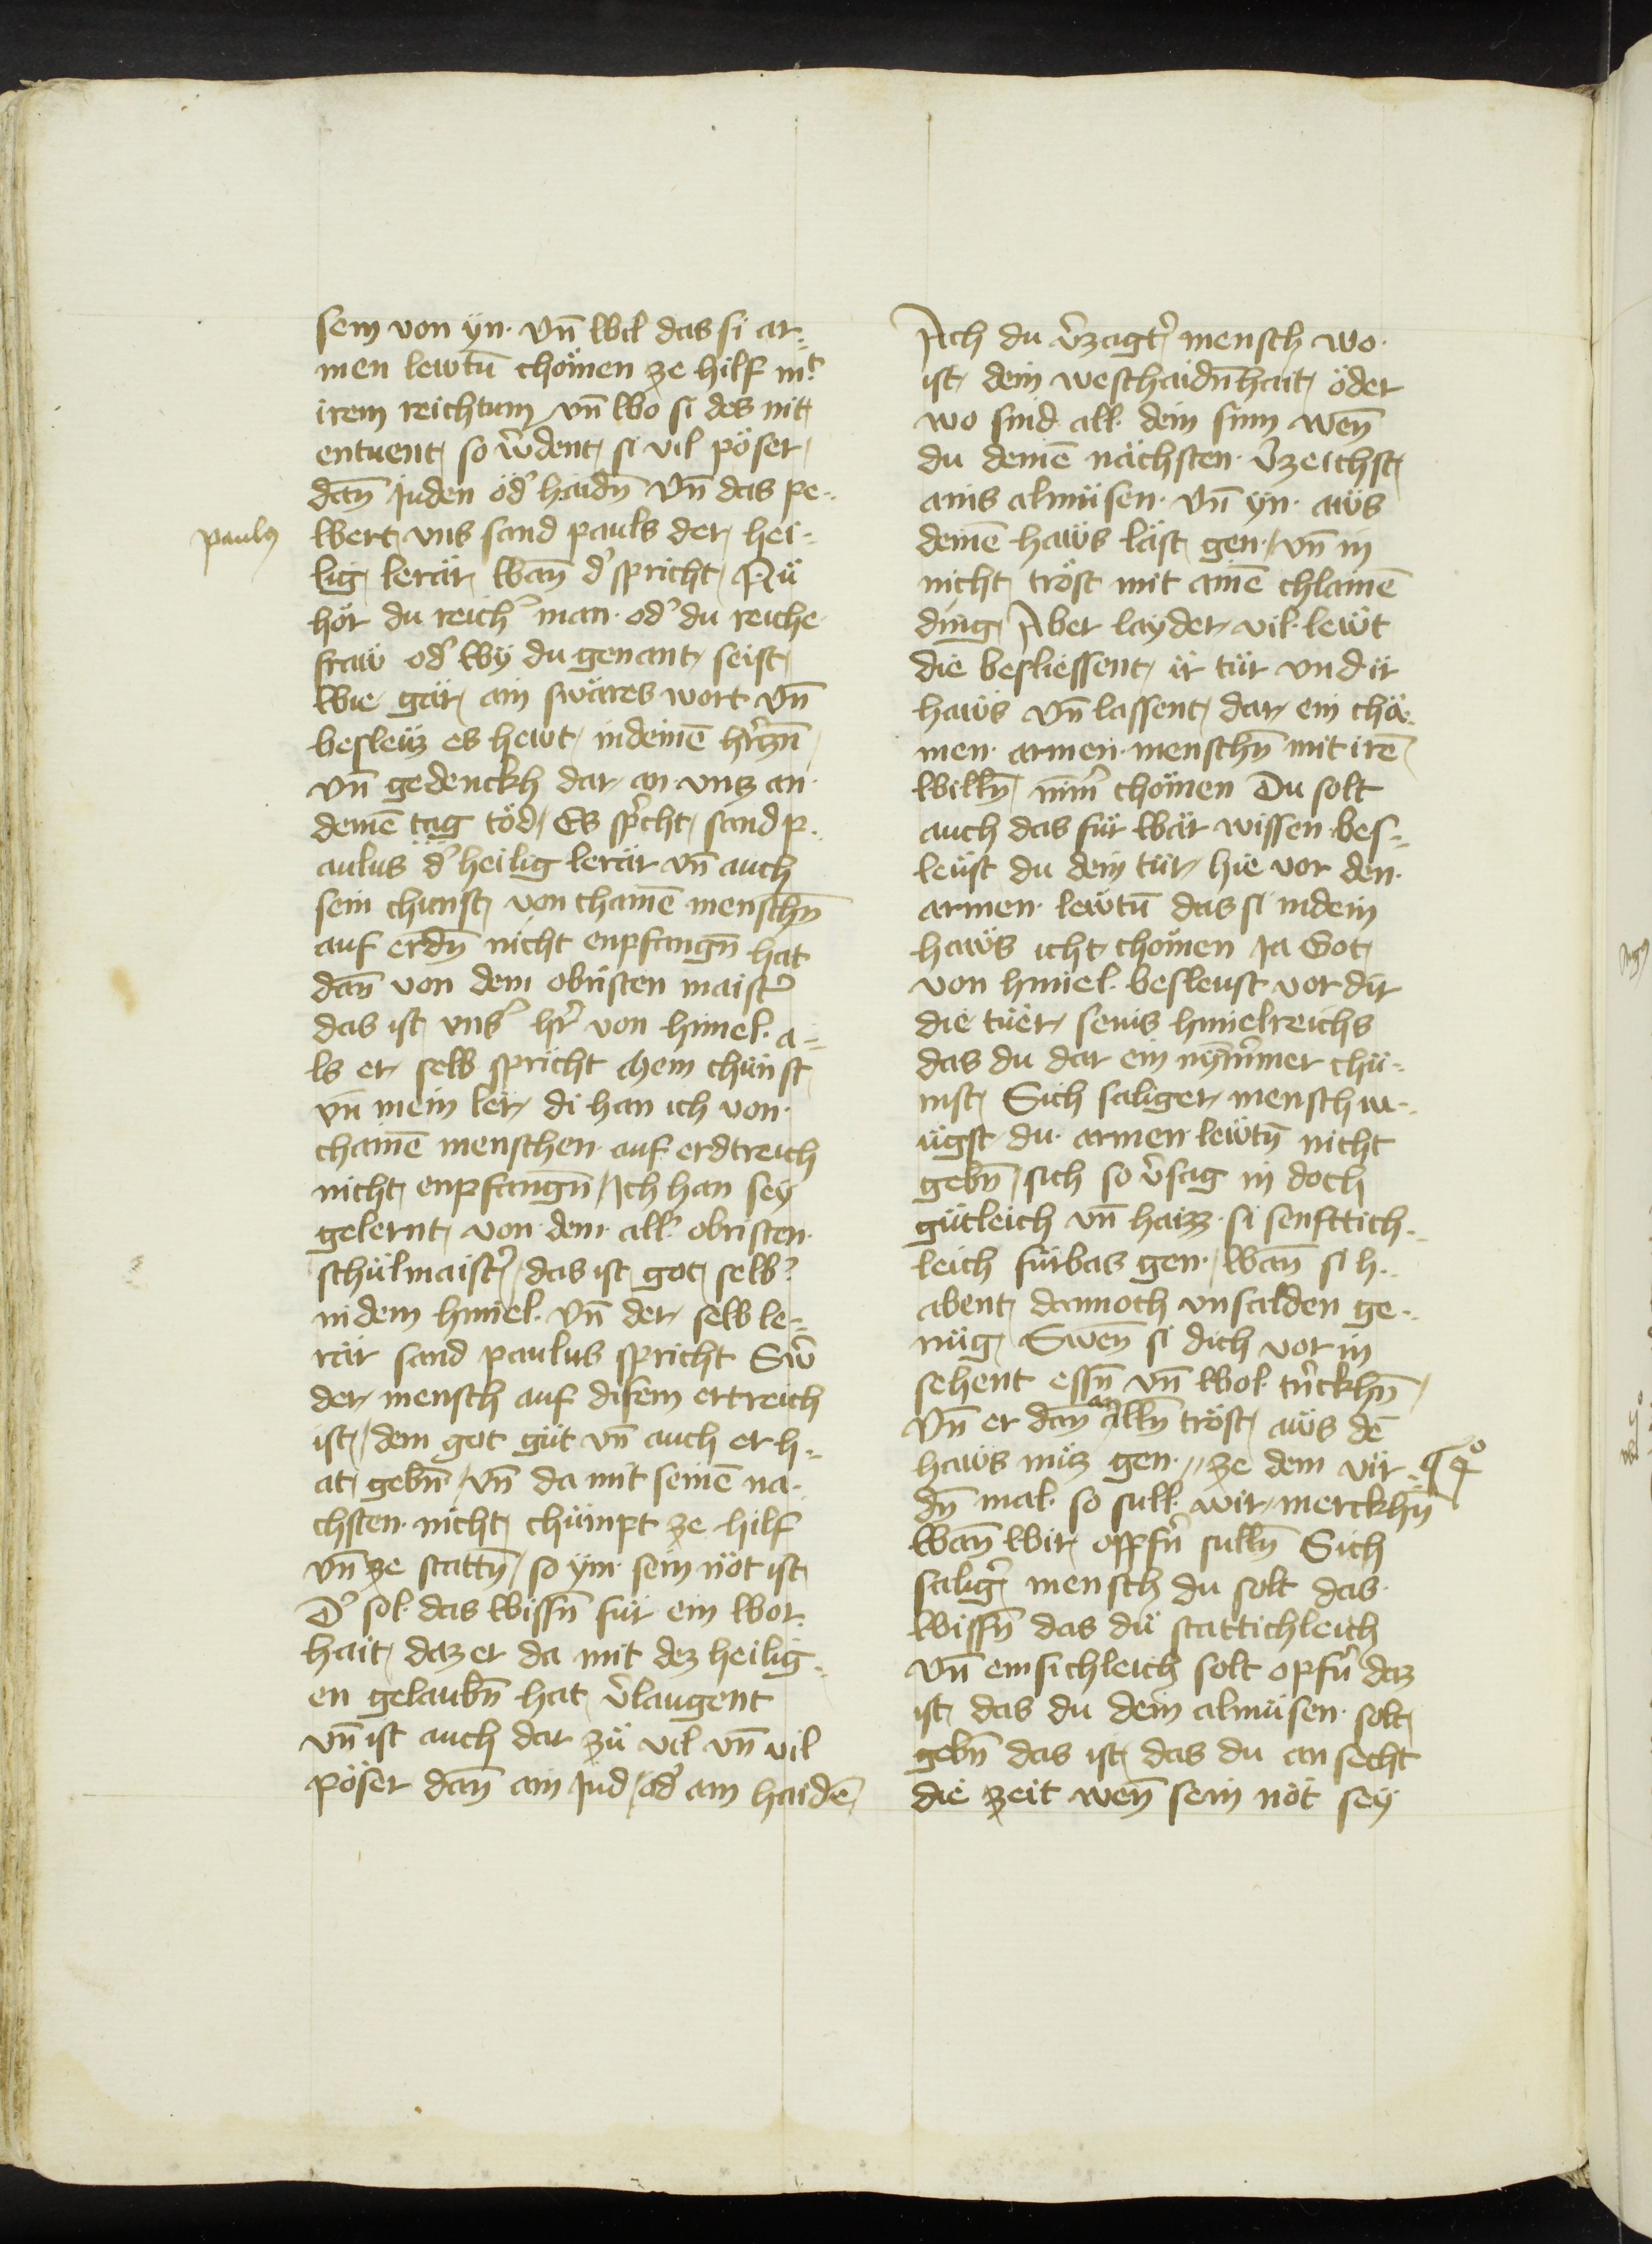 sem von yn · vn̄ wil das si ar-
men lewtn̄ chömen ze hilf mit
irem reichtum vn̄ wo si des nit
entuent so v̉dent si vil pöser
dan̄ Juden öd̾ haidn̄ vn̄ das pe-
paulꝯ
wert vns sand pauls der hei-
lig lerär wan̄ d̾ spricht Nü
hör du reich̾ man · od̾ du reiche
fraw od̾ wÿ du genant seist
wie gär ain swäres wort vn̄
besleüz es hewt in deinē hr̉czn̄
vn̄ gedenckh dar an vntz an
deinē tag töd Es sp̉cht sand p-
aulus d̾ heilig lerär vn̄ auch
sein chunst von chainē menschn̄
auf erdn̄ nicht enpfangn̄ hat
dan̄ von dem obristen maist̾
das ist vns̾ hr̉ von himel · a-
ls er selb spricht Mein chünst
vn̄ mein ler di han ich von
chainē menschen auf erdtreich
nicht enpfangn̄ / Ich han seÿ
gelernt von dem all̾ obristen
schülmaist̾ / das ist got selb̾
in dem himel · vn̄ der selb le-
rär sand paulus spricht Sw̾
der mensch auf disem ertreich
ist / dem got güt vn̄ auch er h-
at gebn̄ / vn̄ da mit seinē nä-
chsten nicht chümpt ze hilf
vn̄ ze stattn̄ / so ÿm sein nöt ist
D̾ sol das wissn̄ für ein wor-
hait daz er da mit dez heilig-
en gelaubn̄ hat v̉laugent
vn̄ ist auch dar zü vil vn̄ vil
pöser dan̄ ain Jud / od̾ ain haidē
Ach du v̉zagt̾ mensch wo
ist dein weschaidn̄hait öder
wo sind all dein sinn wen̄
du deinē nächsten v̉zeichst
ains almüsen · vn̄ ÿn aüs
deinē haẅs läst gen / vn̄ in
nicht tröst mit ainē chlainē
ding Aber layder vil lewt
die besliessent ir tür vnd ir
haẅs vn̄ lassent dar ein chä-
men armen menschn̄ mit irē
willn̄ nim̾ chömen Du solt
auch das für wär wissen bes-
leüst du dein tür hie vor den
armen lewtn̄ das si in dein
haẅs icht chömen Ja Got
von himel besleust vor dir
die tüer seins himelreichs
das du dar ein nÿm̄mer chü-
mst Sich saliger mensch m-
ügst du armen lewtn̄ nicht
gebn̄ / sich so v̉sag in doch
gütleich vn̄ haizz si senfttich-
leich fürbas gen / wan̄ si h-
abent dannoch vnsälden ge-
nüg Swen̄ si dich vor in
sehent essn̄ vn̄ wol tr̉nckhn̄
vn̄ er dan̄ an alln̄ tröst aüs dē
haẅs müz gen · // ze dem vir-
dn̄ mal so sull wir merckhn̄
wan̄ wir opfn̉ sulln̄ Sich
salig̾ mensch du solt das
wissn̄ das dü stattichleich
vn̄ emsichleich solt opfn̉ daz
ist das du dein almüsen solt
gebn̄ das ist das du an secht
die zeit wen̄ sein nöt seÿ